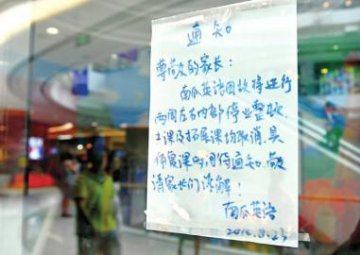 通知
尊敬的家长:
南瓜英语因故将进行
两周左右内部停业整顿,
主课及拓展课均取消,具
体复课时间待通知,敬
请家长们谅解!
南瓜英语
2016.8.23